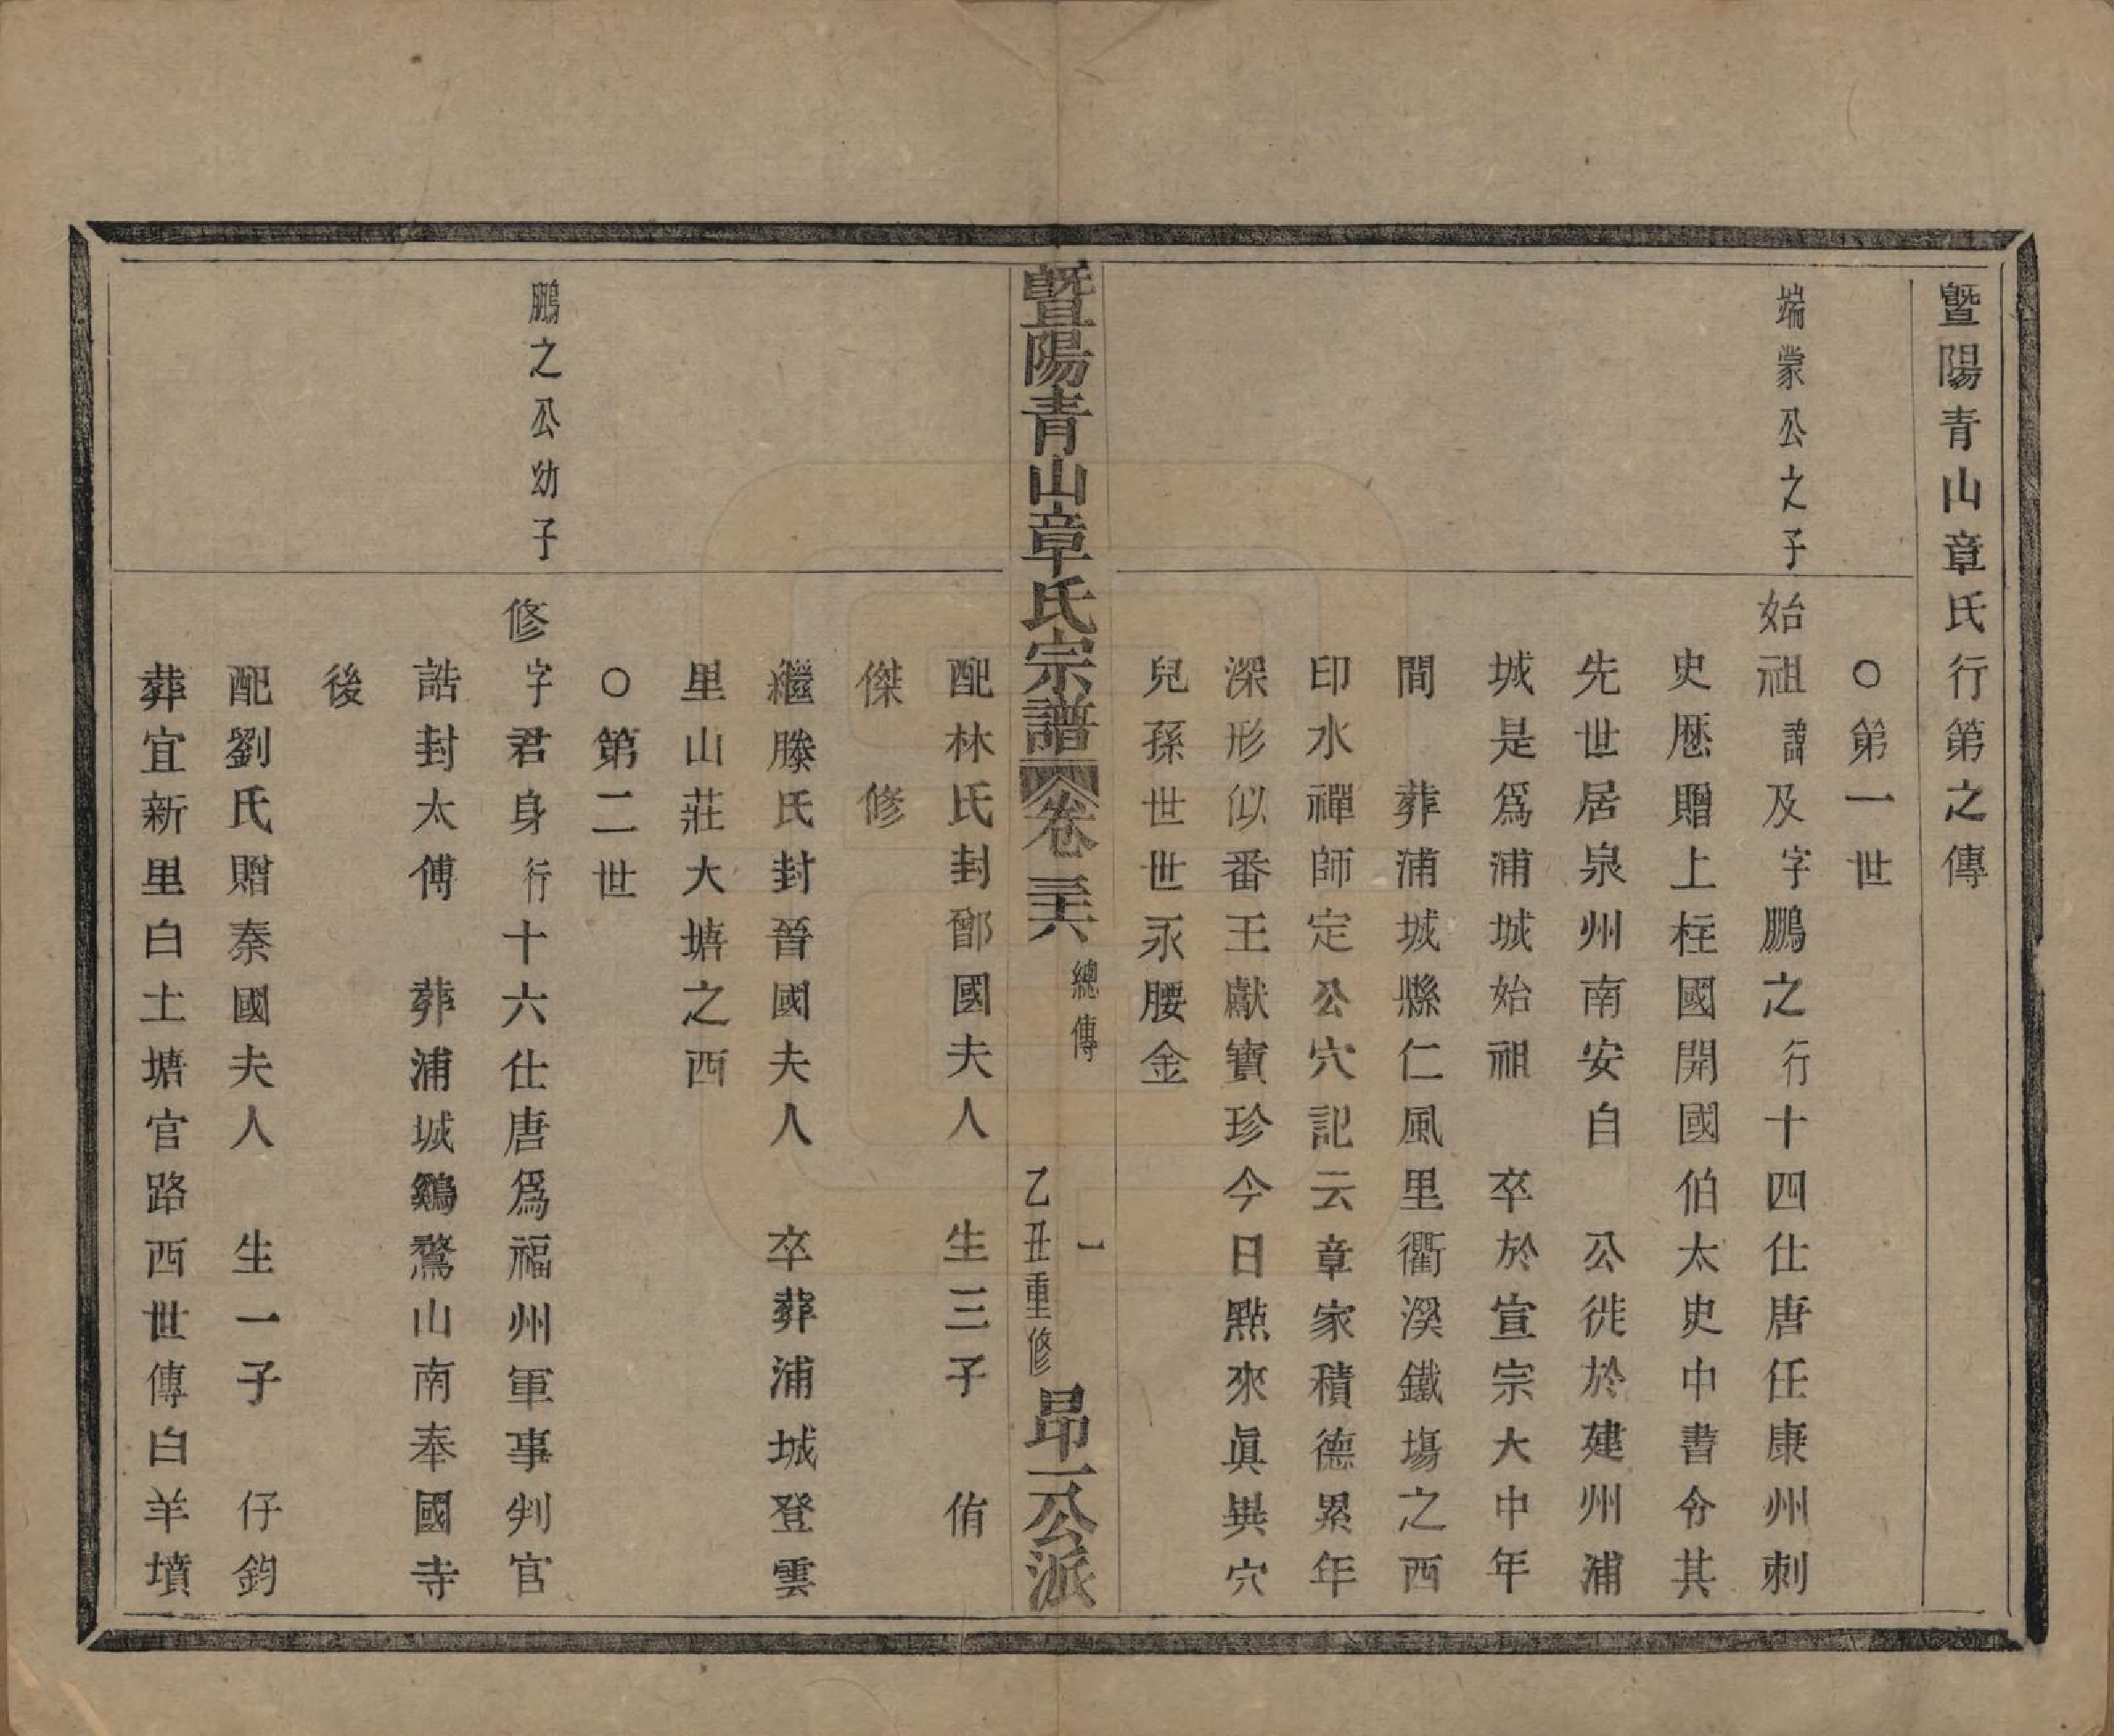 暨陽青山章氏行第之傳
○第一世
端蒙公之子
始祖諱及字鵬之行十四仕唐任康州刺
史歷贈上柱國開國伯太史中書令其
先世居泉州南安自　公徙於建州浦
城是爲浦城始祖　卒於宣宗大中年
間　葬浦城縣仁風里衢溪鐵場之西
印水禪師定公穴記云章家積德累年
深形似番王獻寶珍今日點來眞異穴
兒孫世世永腰金
暨陽青山章氏宗譜
卷三六
總傳
一
乙丑重修
昂一公派
配林氏封鄫國夫人　生三子　侑
傑　修
繼滕氏封晉國夫人　卒葬浦城登雲
里山莊大塘之西
○第二世
鵬之公幼子
修字君身行十六仕唐爲福州軍事判官
誥封太傅　葬浦城鷄鶩山南奉國寺
後
配劉氏贈秦國夫人　生一子　仔鈞
葬宜新里白土塘官路西世傳白羊墳